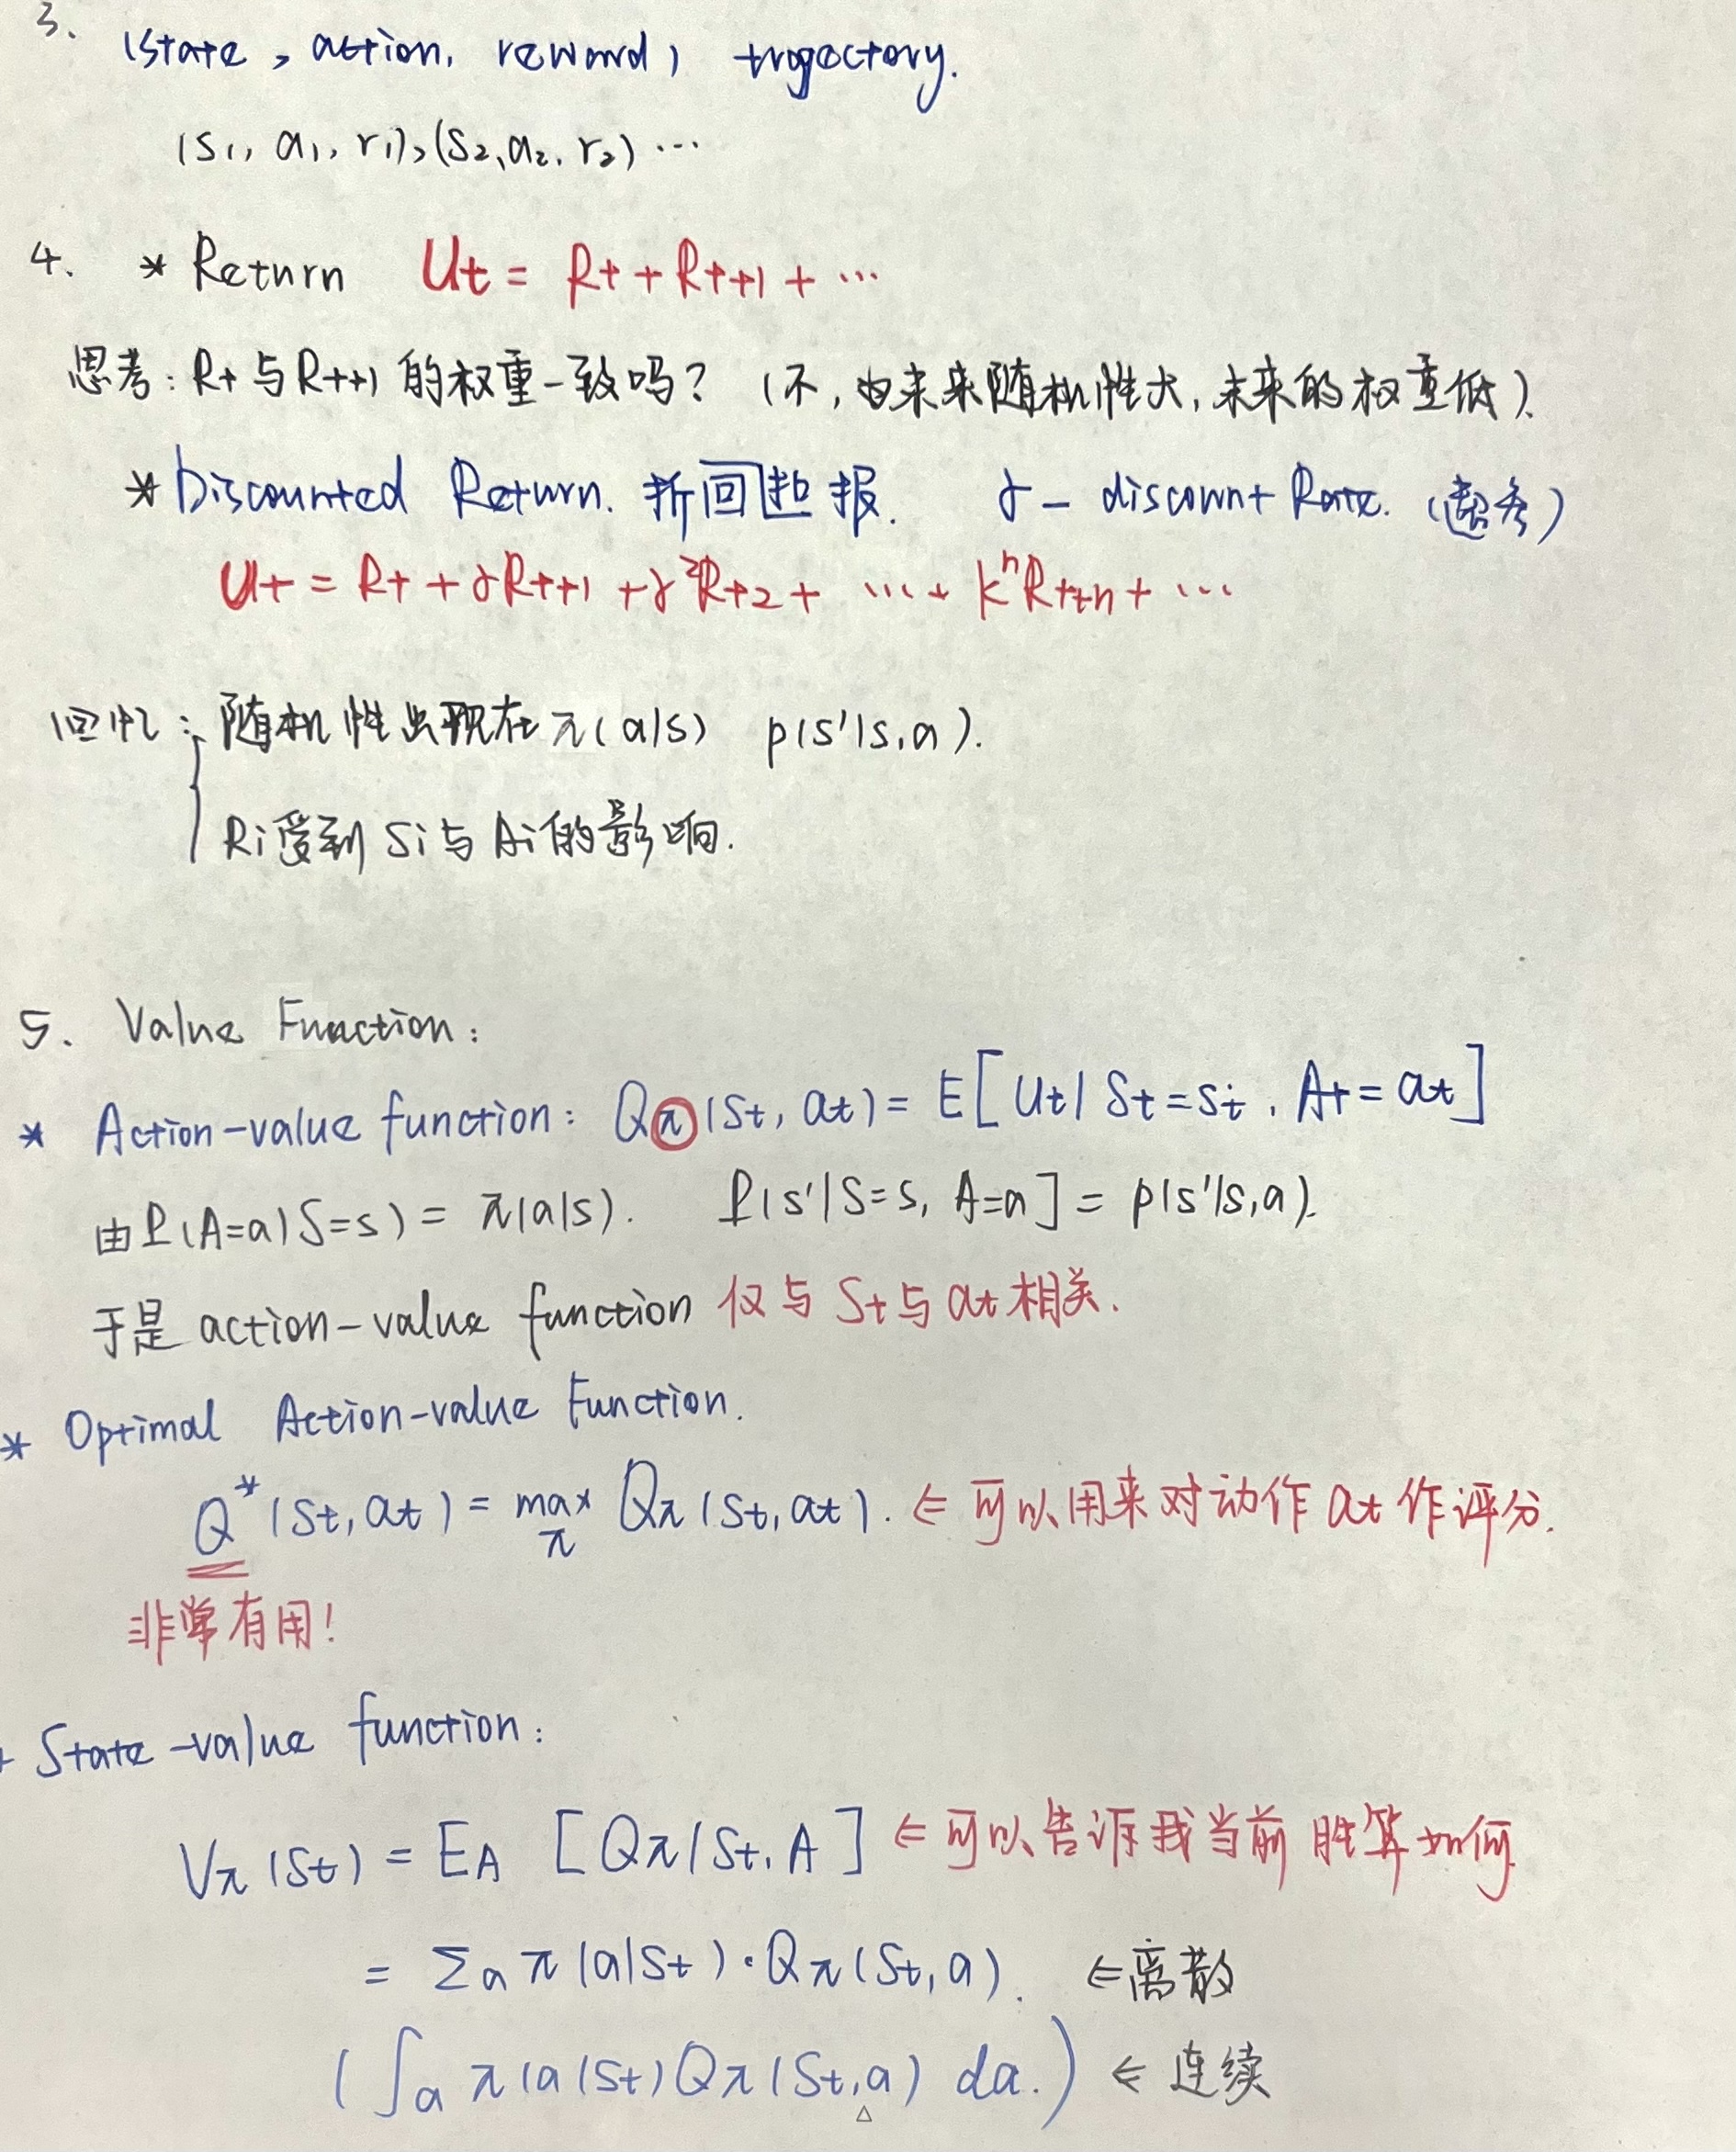 3. (state, action, reward) trogectory.
(s₁, a₁, r₁), (s₂, a₂, r₂) ...
4. * Return Ut = Rt + Rt+1 + ...
思考: Rt 与 Rt+1 的权重一致吗? (不, 由未来随机性大, 未来的权重低).
* Discounted Return. 折回 报. γ — discount Rate. (超参)
Ut = Rt + γRt+1 + γ²Rt+2 + ... + kⁿRt+n + ...
回忆: 随机性出现在 π(a|s) p(s'|s,a).
Ri受到 Si 与 Ai 的影响.
5. Value Function:
* Action-value function: Qπ(St, at) = E[Ut | St=st, At=at]
由 P(A=a|S=s) = π(a|s). P(s'|S=s, A=a] = p(s'|s,a).
于是 action-value function 仅与 St与at 相关.
* Optimal Action-value Function.
Q*(St, at) = max Qπ(St, at). ⇐ 可以用来对动作 at 作评分.
π
非常有用!
State-value function:
Vπ(St) = EA [Qπ(St, A] ⇐ 可以告诉我当前胜算如何
= Σa π(a|St)·Qπ(St, a). ⇐ 离散
(∫a π(a|St)Qπ(St,a) da.) ⇐ 连续